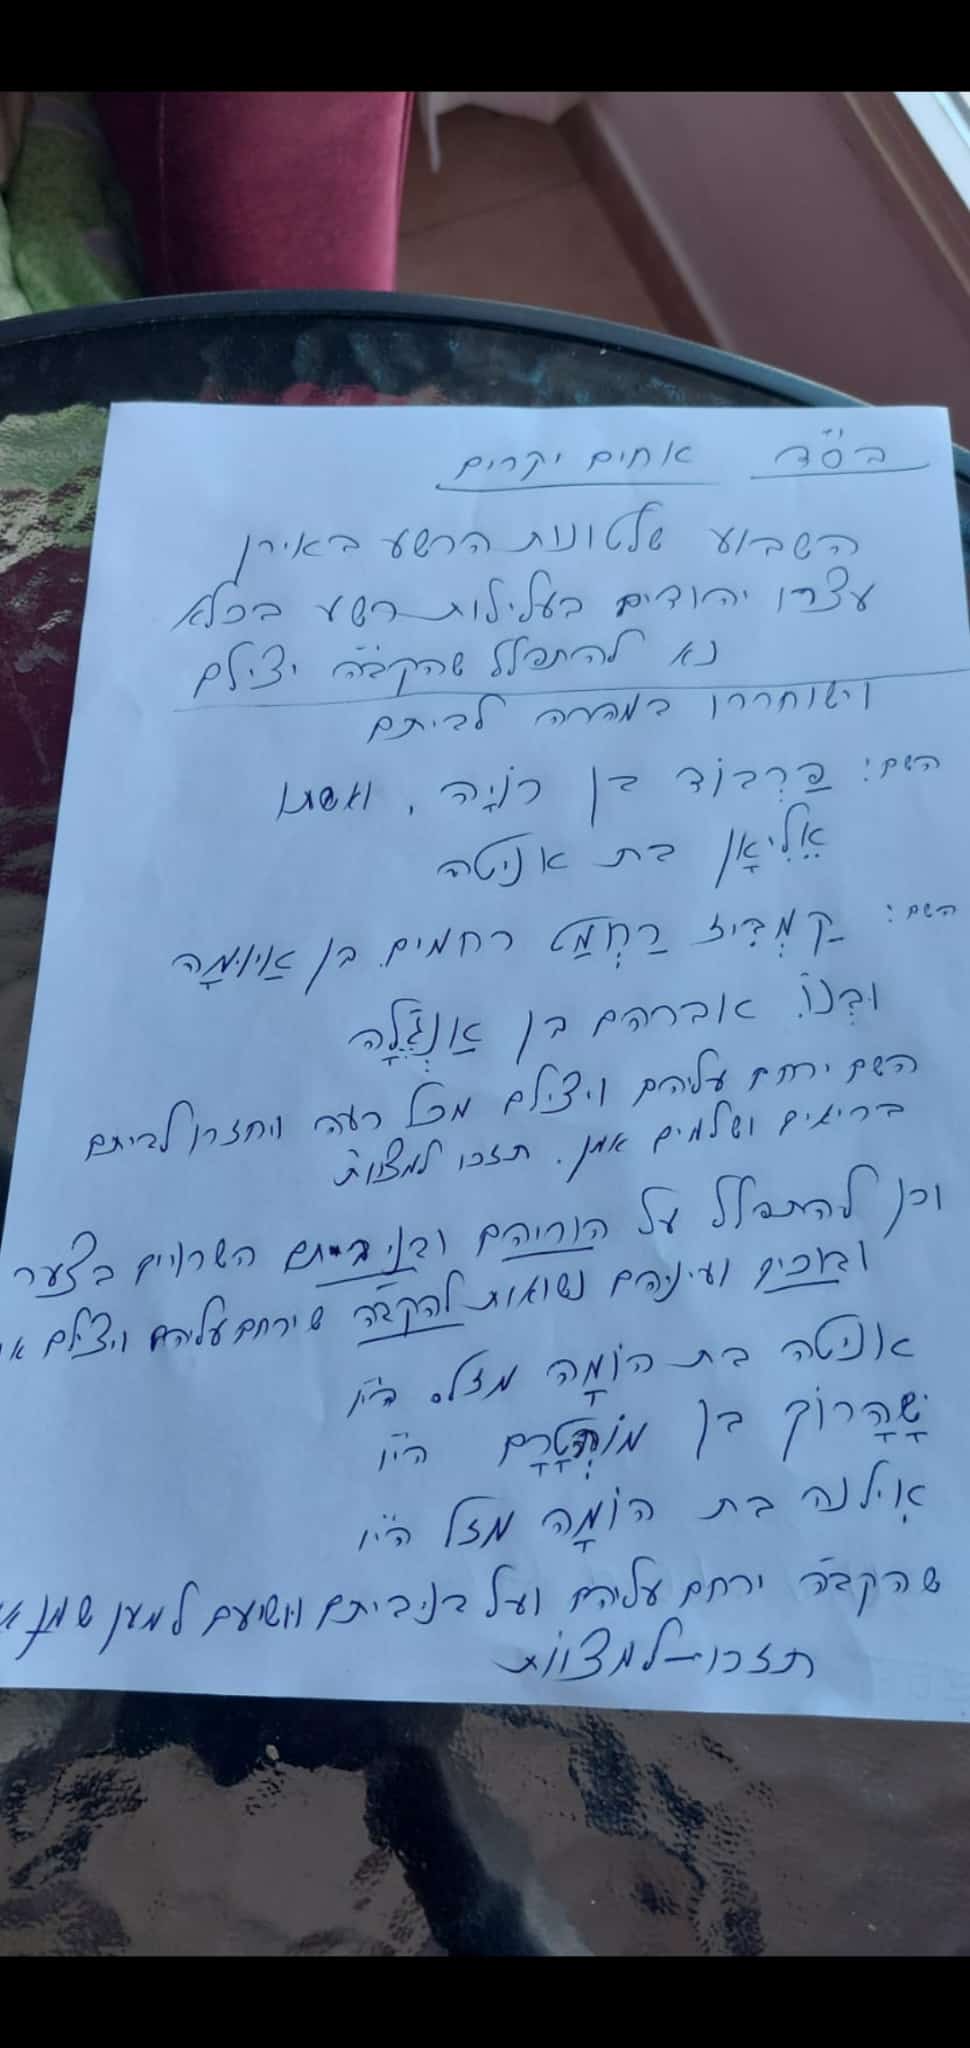 בס"ד אחים יקרים
השבוע שלטונות הרשע באירן
עצרו יהודים בעלילות רשע בכלא
נא להתפלל שהקב"ה יצילם
וישוחררו במהרה לביתם
השם: פַּרְבּוֹד בן רוֹיָה, ואשתו
אֵלִיאָן בת אניטה
השם: קַמְבִּיז רַחְמַט רחמים בן
וּבְנוֹ אברהם בן אַנְגֶ'לָה
השם ירחם עליהם ויצילם מכל רעה ויחזרו לביתם
בריאים ושלמים אמן. תזכו למצוות
וכן להתפלל על הוריהם ובני ביתם השרויים בצער
ועיניהם נשואות להקב"ה שירחם עליהם ויצילם
אניטה בת הוֹמָה מזל הי"ו
שָׁהָרוֹךְ בן מוֹחְטָרָם הי"ו
אִילנה בת הוֹמָה מזל הי"ו
שהקב"ה ירחם עליהם ועל בני ביתם ויושיעם למען שמו
תזכו למצוות